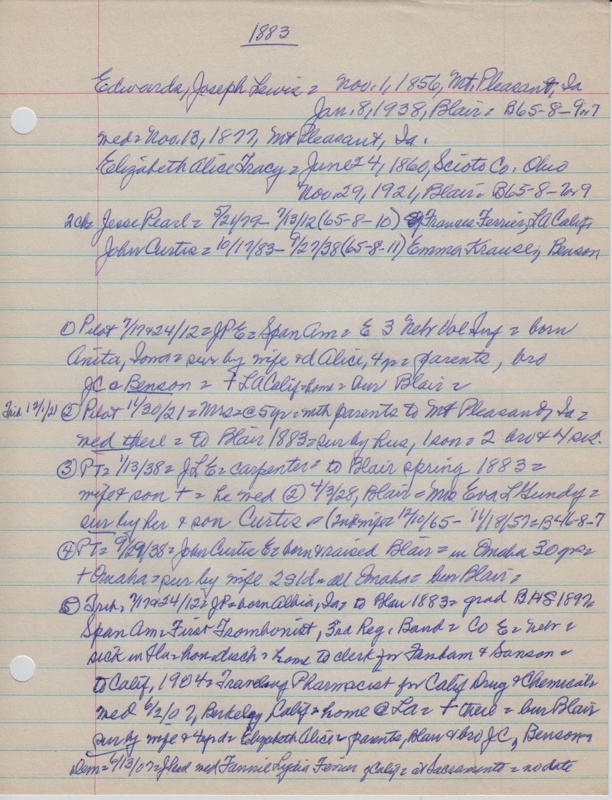 1883
Edwards, Joseph Lewis = Nov. 1, 1856, Mt. Pleasant, Ia
Jan. 8, 1938, Blair = B65-8-9w7
med = Nov. 13, 1877, Mt Pleasant, Ia.
Elizabeth Alice Tracy = June 24, 1860, Scioto Co. Ohio
Nov. 29, 1921, Blair = B65-8-2w9
2ch = Jesse Pearl = 5/21/79 - 7/13/12 (65-8-10) Francis Ferrier, LA Calif
John Curtis = 10/17/83 - 9/27/38 (65-8-11) Emma Krause, Benson
① Pilot 7/17&24/12 = JPE = Span Am = E 3 Nebr Vol Inf = born
Anita, Iowa = sur by wife & d Alice, 4 yr = parents, bro
JC @ Benson = + LA Calif = home = bur Blair =
Trib. 12/1/21 ② Pilot 11/30/21 = Mrs = @ 5 yr = with parents to Mt Pleasant, Ia =
med there = to Blair 1883 = sur by hus, 1 son = 2 bro & 4 sis.
③ PT = 1/13/38 = JLE = carpenter = to Blair spring 1883 =
wife & son + = he med ② 4/3/28, Blair = Mrs Eva L Gundy =
sur by her & son Curtis = (2nd wife = 12/10/65 - 11/18/57 = B46-8-7
④ PT = 9/29/38 = John Curtis E = born & raised Blair = in Omaha 30 yrs =
+ Omaha = sur by wife 2s 1d = all Omaha = bur Blair =
⑤ Trib, 7/17&24/12 = JP = born Albia, Ia = to Blair 1883 = grad BHS 1897
Span Am = First Trombonist, 3rd Reg. Band = Co E = Nebr =
sick in Fla = hon disch = home to clerk for Fanham & Sanson =
to Calif, 1904 = Traveling Pharmacist for Calif Drug & Chemicals
med 6/2/07, Berkeley, Calif = home @ La = + there = bur Blair
sur by wife & 4 yr d = Elizabeth Alice = parents, Blair & bro JC, Benson =
Dem = 6/13/07 = J Pearl med Fannie Lydia Ferrier of Calif = at Sacramento = no date